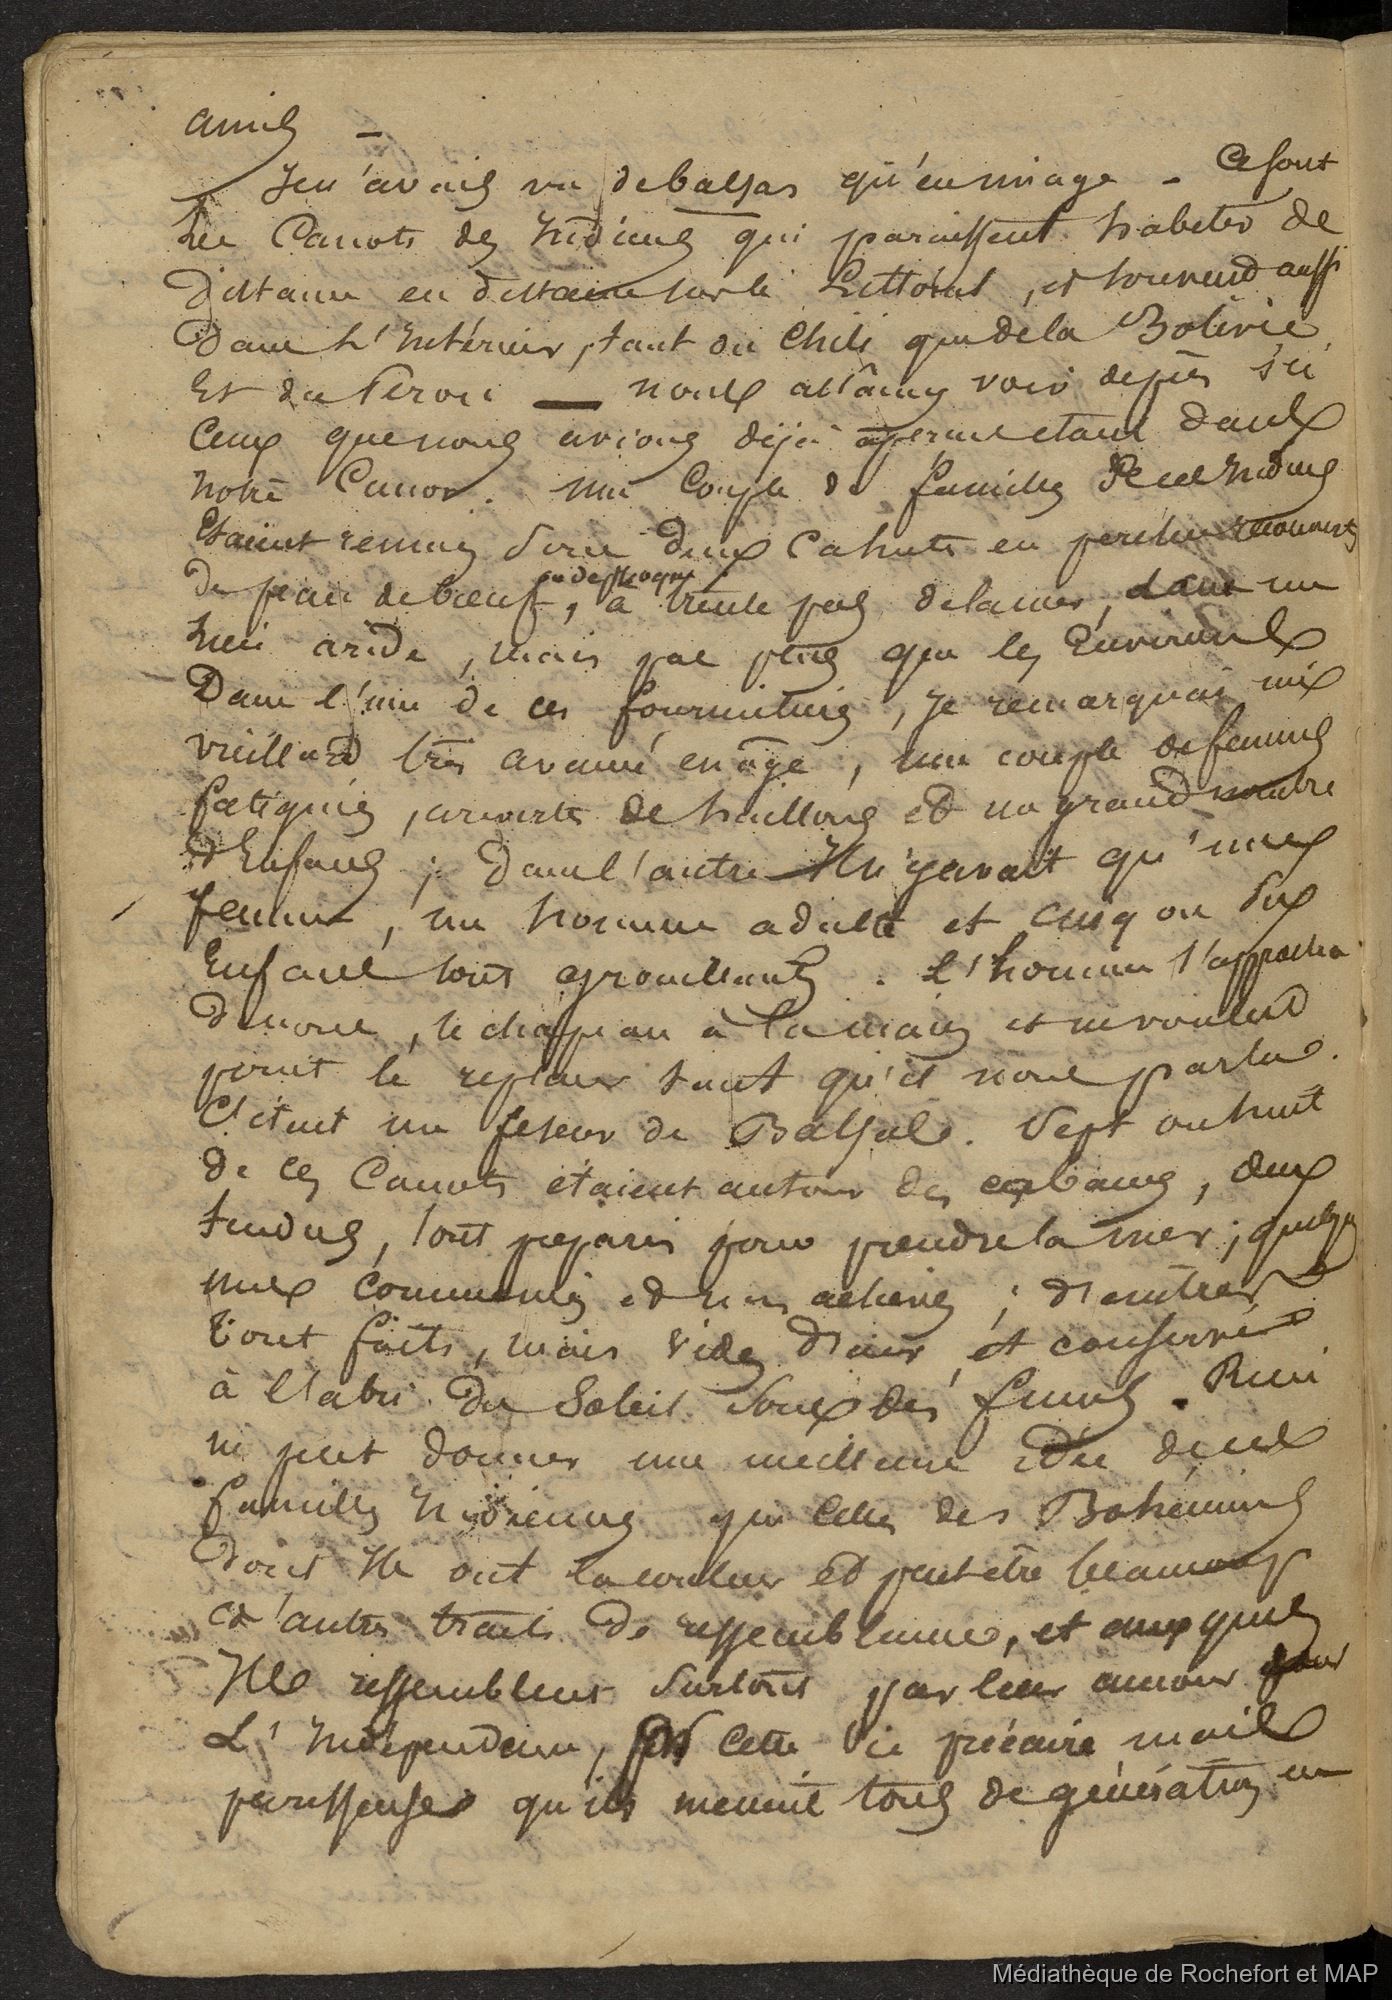 amis —
Je n'avais vu de balsas qu'en image - Ce sont
Les Canots des Indiens qui paraissent habiter de
Distance en distance sur le Littoral, et souvend aussi
Dans L'Intérieur, tant du Chili que de la Bolivie
Et du Pérou — nous allâmes voir depuis ici
Ceux que nous avions déjà aperçus etant dans
notre Canot. Une Couple de familles de ces Indiens
Etaient réunis sous deux Cahutes en perches recouvertes
De peau de bœuf, ou de phoques, à trente pas de la mer, dans un
Lieu aride, mais pas plus que les Environs
Dans l'une de ces fourmilières, Je remarquai un
vieillard très avancé en âge, une couple de femmes
fatiguées, couvertes de haillons et un grand nombre
d'Enfans ; Dans l'autre Il n'y avait qu'une
femme, un homme adulte et cinq ou Six
Enfans tous grouillants. L'homme s'approcha
De nous, le chapeau à la main et ne voulud
point le replacer tant qu'il nous parla.
C'était un feseur de Balsas. Sept ou huit
De ces Canots étaient autour des cabanes, deux
tendus, tout préparés pour prendre la mer ; quelques
uns commencés et non achevés ; d'autres
tout faits, mais vides d'air, et conservés
à l'abri du Soleil sous des . Rien
ne peut donner une meilleure idée de ces
familles Indiennes que celles des Bohémiens
Dont Ils ont la couleur et peut etre beaucoup
d'autres traits de ressemblance, et auxquels
Ils ressemblent Surtout par leur amour pour
L'Indépendance, cette vie précaire mais
paresseuse qu'ils menent tous de génération en
Médiathèque de Rochefort et MAP